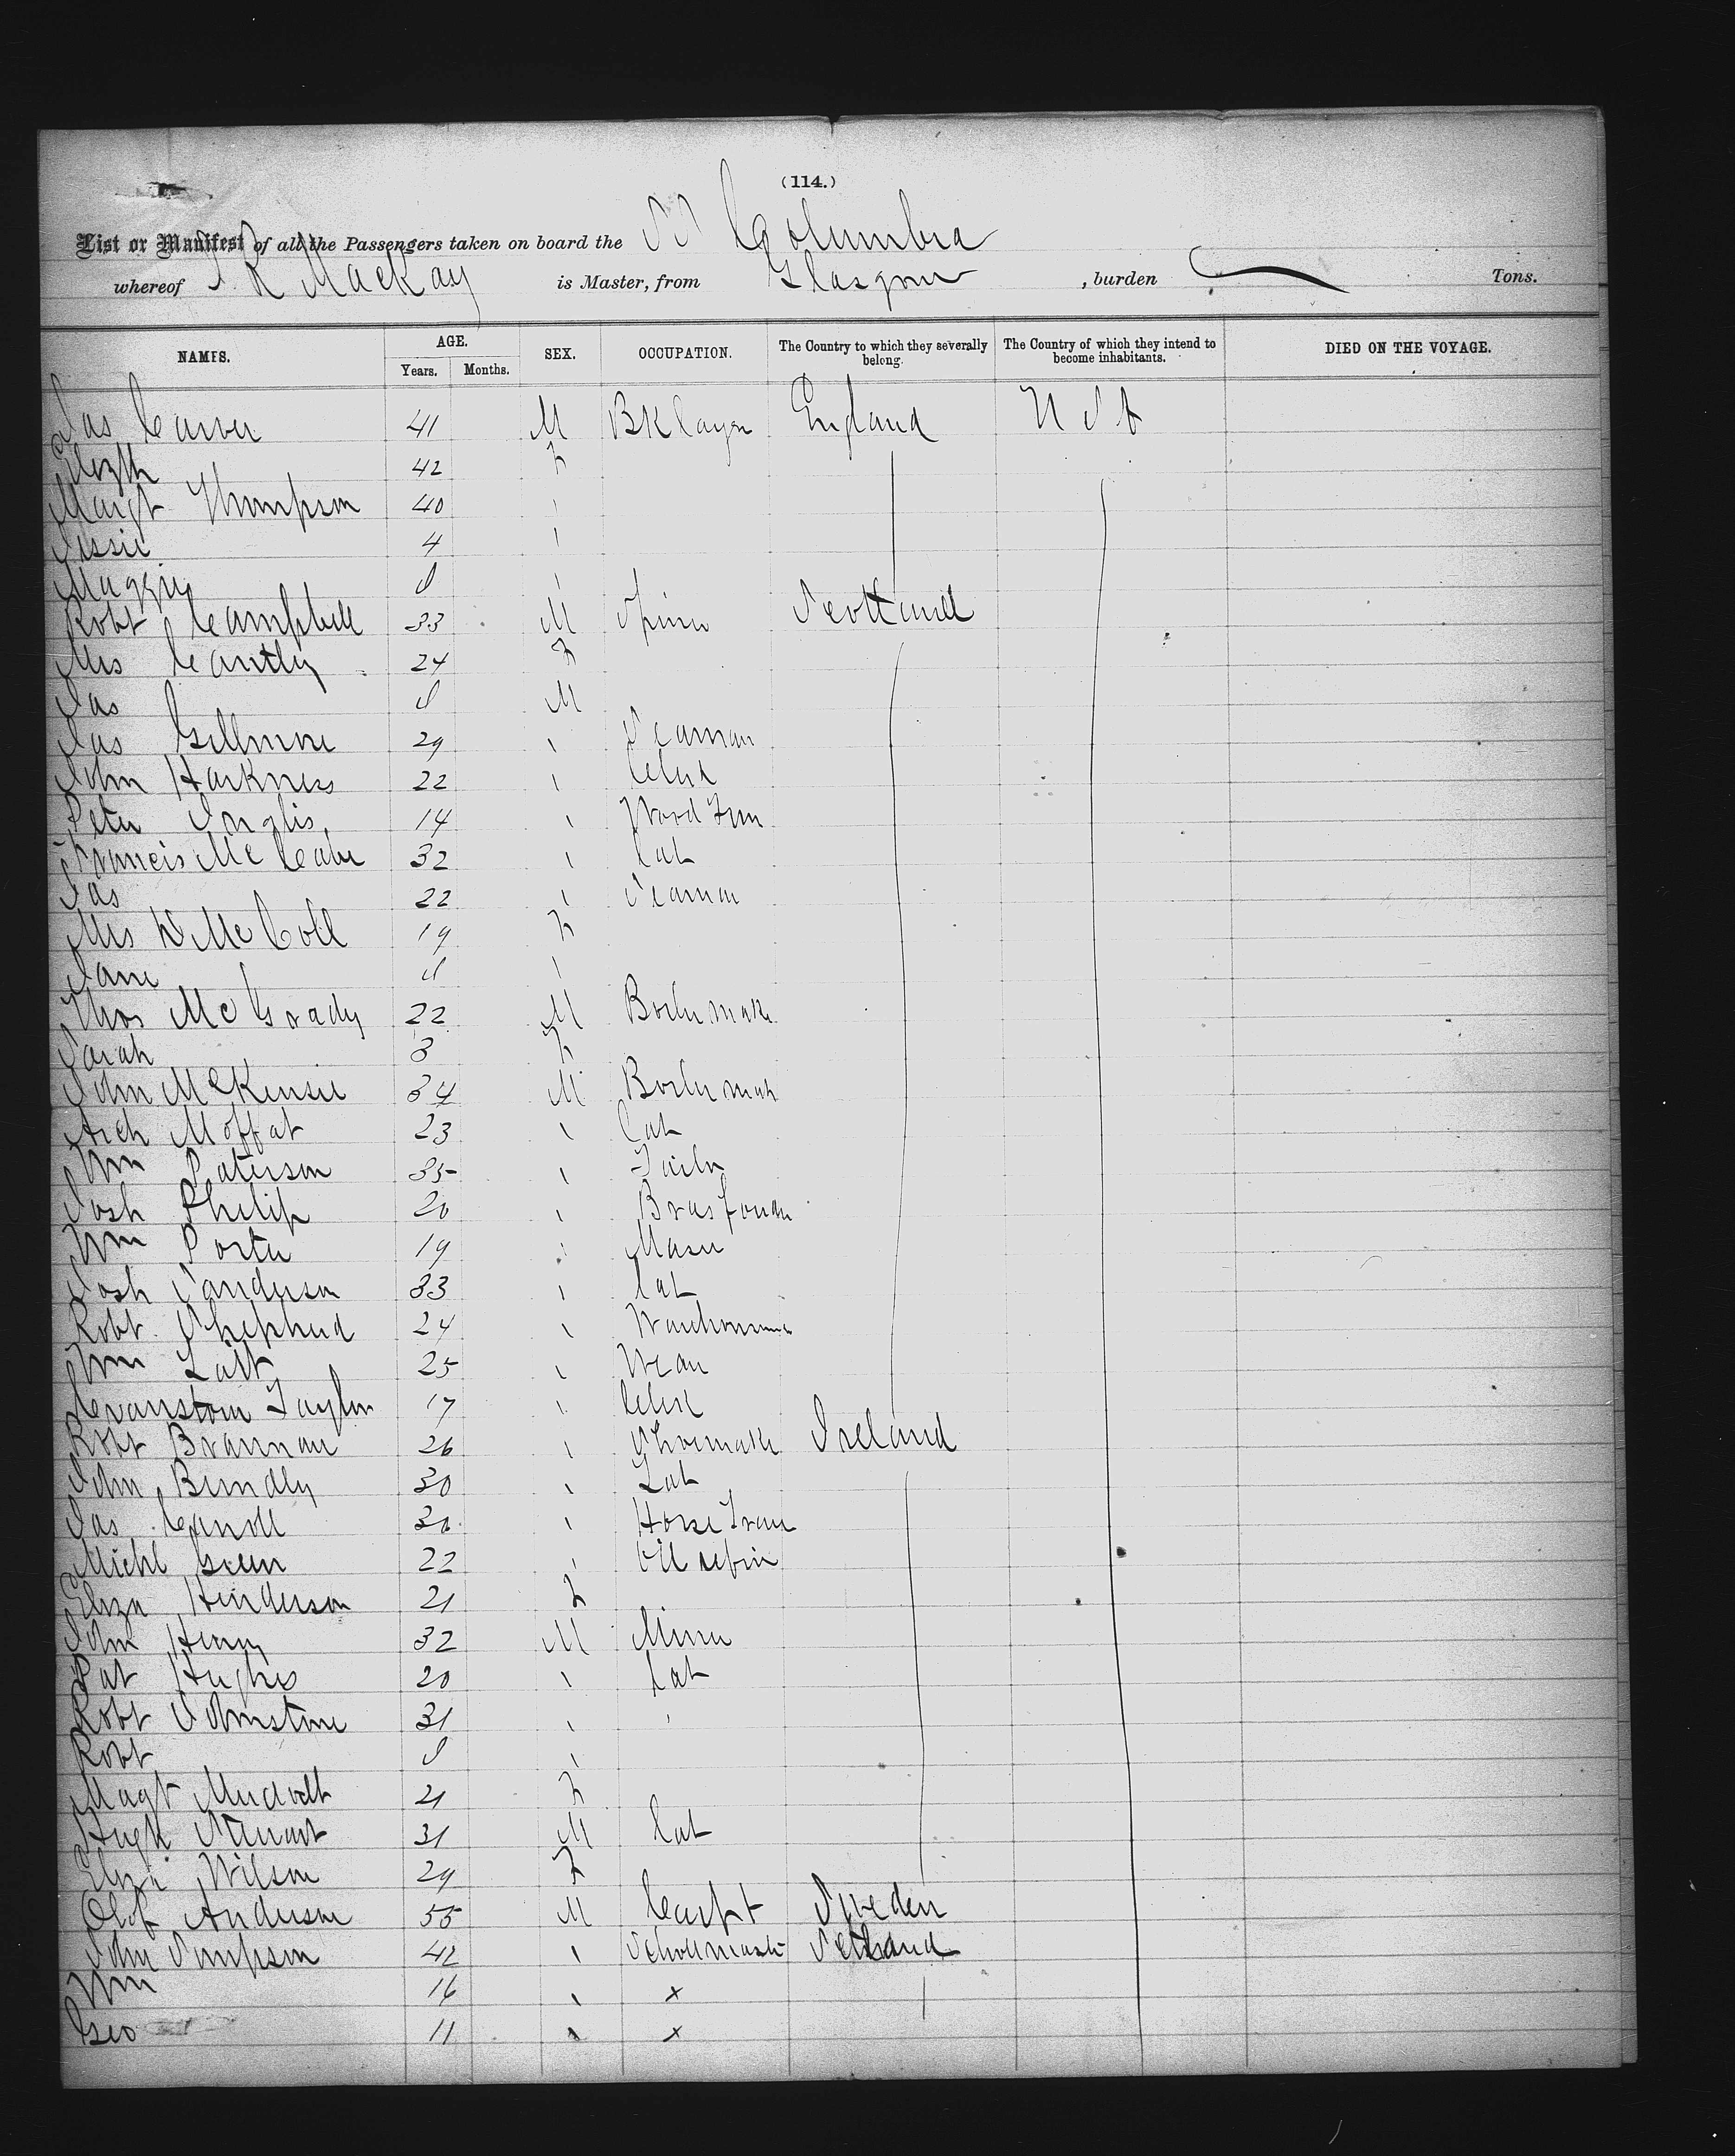 (114.)
List or Manifest of all the Passengers taken on board the SS Columbia
whereof J. R MacKay is Master, from Glasgow , burden Tons.
NAMES. AGE. SEX. OCCUPATION. The Country to which they severally belong. The Country of which they intend to become inhabitants. DIED ON THE VOYAGE.
Years. Months.
Jas Carver 41 M BKlayer England U S A
Elizth 42 F
Margt Thompson 40
Jessie 4
Maggie
Robt Campbell 33 M Scotland
Mrs Cantly 24 F
Jas M
Jas Gillmore 29 Seaman
John Harkness 22 Clerk
Peter Inglis 14 Wood Turn
Francis McCabe 32 Lab
Jas 22 Seaman
Mrs D McColl 19 F
Jane
Thos McGrady 22 M Boiler make
Sarah 3 F
John McKensie 34 M Boiler mak
Arch Moffat 23 Lab
Wm Paterson 35 Tailor
Josh Philip 20 Bras founder
Wm Porter 19 Mason
Josh Sanderson 33 Lab
Robt Shepherd 24 Warehouseman
Wm Tait 25
Cranstoun Taylor 17 Clerk
Robt Brannan 26 Shoemaker Ireland
John Brindly 30 Lab
Jas Carroll 30 Horse Train
Michl Green 22 Oil refin
Eliza Henderson 21 F
John Henry 32 M Miner
Pat Hughes 20 Lab
Robt Johnstone 31 '
Robt
Magt 21 F
Hugh Stewart 31 M Lab
Eliza Wilson 29 F
Olof Anderson 55 M Carpt Sweden
John Simpson 42 Schoolmast Scotland
Wm 16 x
Geo 11 x